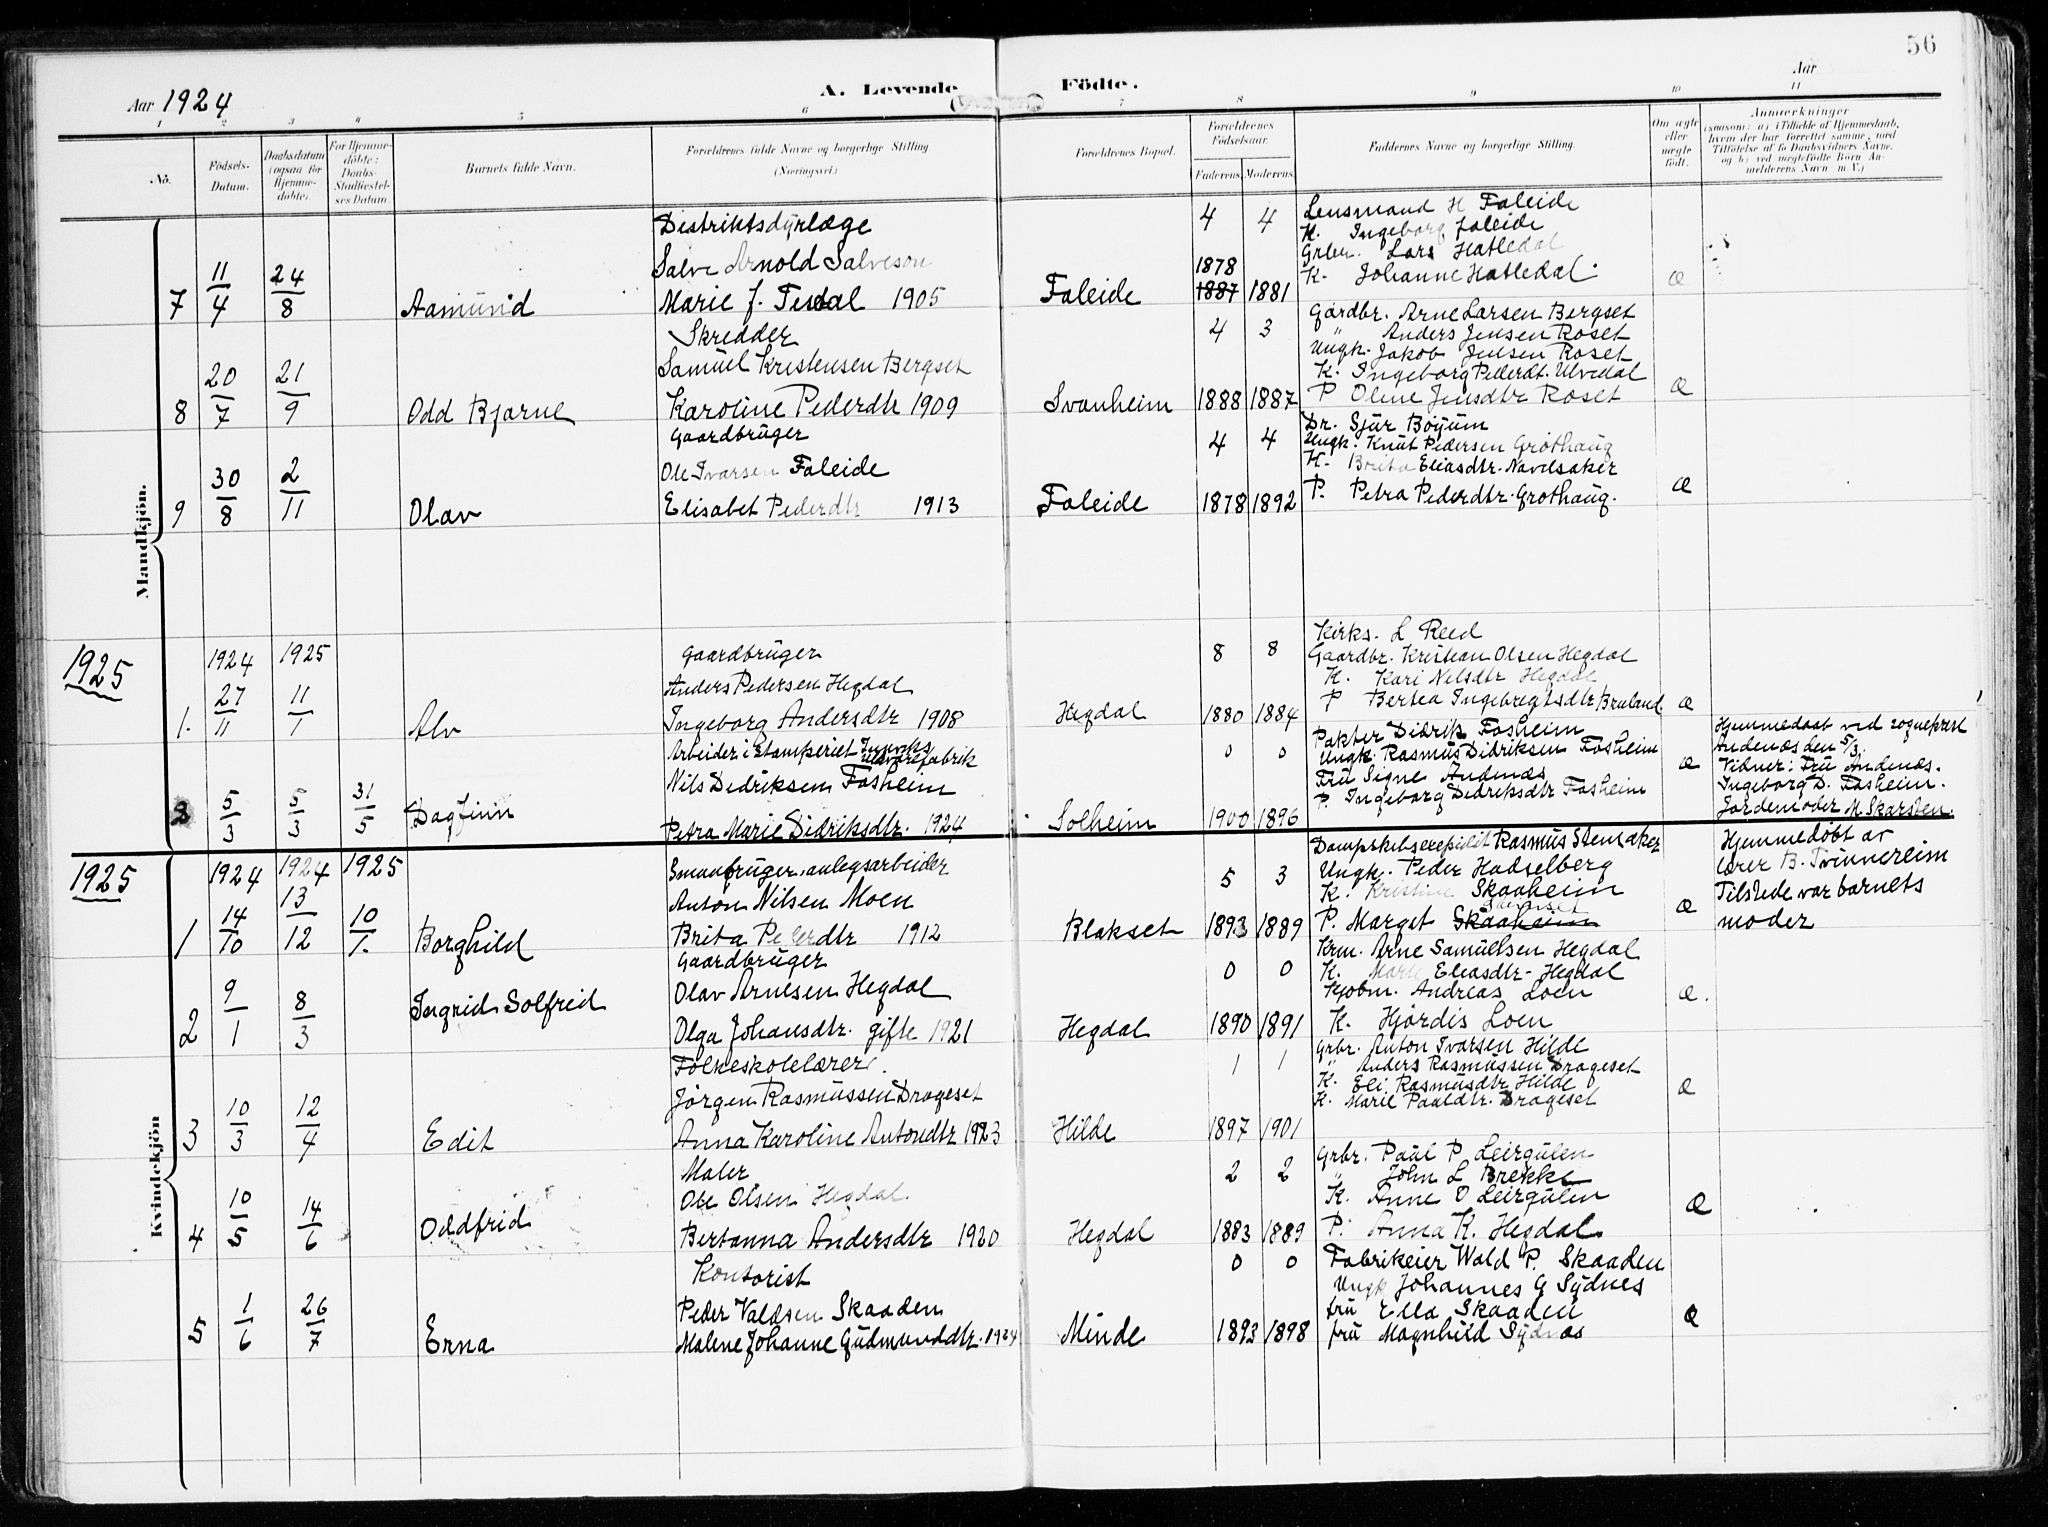 56
Aar 1924
A. Levende
Födte.
Aar
1 2 3 4 5 6 7 8 9 10 11
No.
Födsels-
Datum.
Daabsdatum
(ogsaa for
Hjemme-
döbte).
For Hjemme-
döbte:
Daabs-
Stadfæstel-
ses Datum.
Barnets fulde Navn.
Forældrenes fulde Navne og borgerlige Stilling
(Næringsvei.)
Forældrenes Bopæl.
Forældrenes
Födselsaar.
Faderens. Moderens.
Faddernes Navne og borgerlige Stilling.
Om ægte
eller
uægte
födt.
Anmærkninger
(saasom: a) i Tilfælde af Hjemmedaab,
hvem der har forrettet samme, med
Tilföielse af to Daabsvidners Navne,
og b) ved uægtefödte Börn An-
melderens Navn m. V.)
Mandkjön.
7
11/4
24/8
Aamund
Distriktsdyrlæge
Salve Arnold Salveson
Marie J. 1905
Faleide
4 4
1878
1887 1881
Lensmand H Faleide
K. Ingeborg Faleide
Grbr. Lars Hatledal
K. Johanne Hatledal
Æ
8
20/7
21/9
Odd Bjarne
Skredder
Samuel Kristensen Bergset
Karoline Pederdtr 1909
Svanheim
4 3
1888 1887
Gardbr. Arne Larsen Bergset
" Anders Jensen Roset
Ungk. Jakob Jensen Roset
K. Ingeborg Pederdt. Ulvedal
P Oline Jensdtr Roset
Æ
9
30/8
2/11
Olav
Gaardbruger
Ole Ivarsen Faleide
Elisabet Pederdtr 1913
Faleide
4 4
1878 1892
Dr. Sjur Bøyum
Ungk. Knut Pedersen Grothaug
K. Brita Eliasdtr. Navelsaker
P. Petra Pederdtr. Grothaug.
Æ
1925
1.
1924
27/11
1925
11/1
Alv
Gaardbruger
Anders Pedersen Hegdal
Ingeborg Andersdtr 1908
Hegdal
8 8
1880 1884
Kirks. L Reed
Gaardbr. Kristian Olsen Hegdal
K. Kari Nilsdtr Hegdal
P Bertea Ingebregtsdtr Bruland
Æ
2
5/3
5/3
31/5
Dagfinn
Arbeider i Stamperiet Inviks
Uldvarefabrik
Nils Dedriksen Fosheim
Petra Marie Didriksdtr. 1924
Solheim
0 0
1900 1896
Pakter Didrik Fosheim
Ungk. Rasmus Didriksen Fosheim
Fru Signe Andenæs
P. Ingeborg Dedriksdtr Fosheim
Æ
Hjemmedaab ved sogneprest
Andenæs den 5/3.
Vidner: Fru Andenæs.
Ingeborg D. Fosheim.
Jordemoder M. Skarsten.
1925
Kvindekjön
1
1924
14/10
1924
13/12
1925
10/1.
Borghild
Smaabruger, anlegsarbeider
Anton Nilsen Moen
Brita Pederdtr 1912
Blakset
5 3
1893 1889
Dampskibsexpeditør Rasmus Stensaker
Ungk. Peder Hadselberg
K. Kristine Skaaheim
P. Marget Skaaheim
Æ
Hjemmedøbt av
lærer B. Tvinnereim
Tilstede var barnets
moder
2
9/1
8/3
Ingrid Solfrid
Gaardbruger
Olav Arnesen Hegdal
Olga Johansdtr. gifte 1921
Hegdal
0 0
1890 1891
Krm. Arne Samuelsen Hegdal
K. Marte Eliasdtr- Hegdal
Kjøbm. Andreas Loen
K. Hjørdis Loen
Æ.
3
10/3
12/4
Edit
Folkeskolelærer.
Jørgen Rasmussen Drageset
Anna Karoline Antondtr 1923
Hilde
1 1
1897 1901
Grbr. Anton Ivarsen Hilde
" Anders Rasmussen Drageset
K. Eli Rasmusdtr Hilde
K. Marie Pauldtr. Drageset
Æ
4
10/5
14/6
Oddfrid
Maler
Ole Olsen Hegdal.
Bertanna Andersdtr 1920
Hegdal
2 2
1883 1889
Grbr. Paul P. Leirgulen
" John L Brekke
K. Anne O Leirgulen
P. Anna K. Hegdal.
Æ
5
1/6
26/7
Erna
Kontorist
Peder Valdsen Skaaden
Malene Johanne Gudmunddtr. 1924
Minde
0 0
1893 1898
Fabrikeier Wald P. Skaaden
Ungk Johannes G Sydnes
fru Ella Skaaden
fru Magnhild Sydnæs
Æ